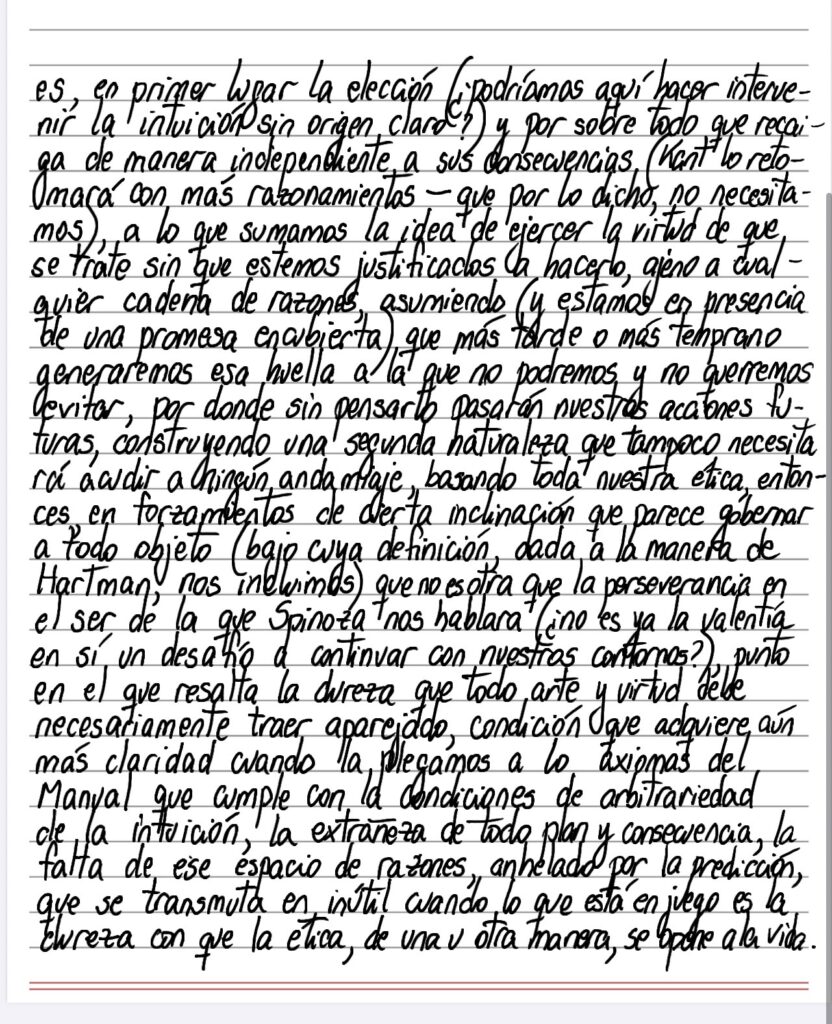 es, en primer lugar la elección (¿podríamos aquí hacer interve-
nir la intuición sin origen claro?) y por sobre todo que recai-
ga de manera independiente a sus consecuencias (Kant lo reto-
mará con más razonamientos — que por lo dicho, no necesita-
mos), a lo que sumamos la idea de ejercer la virtud de que
se trate sin que estemos justificados a hacerlo, ajeno a cual-
quier cadena de razones, asumiendo (y estamos en presencia
de una promesa encubierta) que más tarde o más temprano
generaremos esa huella a la que no podremos y no querremos
evitar, por donde sin pensarlo pasarán nuestras acciones fu-
turas, construyendo una segunda naturaleza que tampoco necesita
rá acudir a ningún andamiaje, basando toda nuestra etica, enton-
ces, en forzamientos de cierta inclinación que parece gobernar
a todo objeto (bajo cuya definición, dada a la manera de
Hartman, nos incluimos) que no es otra que la perseverancia en
el ser de la que Spinoza nos hablara (¿no es ya la valentía
en sí un desafío a continuar con nuestros contornos?), punto
en el que resalta la dureza que todo arte y virtud debe
necesariamente traer aparejado, condición que adquiere aún
más claridad cuando la plegamos a lo axiomas del
Manual que cumple con la condiciones de arbitrariedad
de la intuición, la extrañeza de todo plan y consecuencia, la
falta de ese espacio de razones, anhelado por la predicción,
que se transmuta en inútil cuando lo que está en juego es la
dureza con que la etica, de una u otra manera, se opone a la vida.